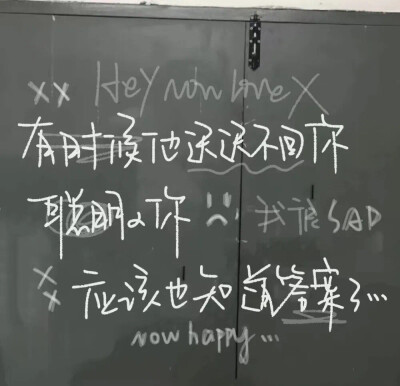 Hey non love X
有时候他迟迟不回你
聪明的你 我很SAD
应该也知道答案了...
now happy...